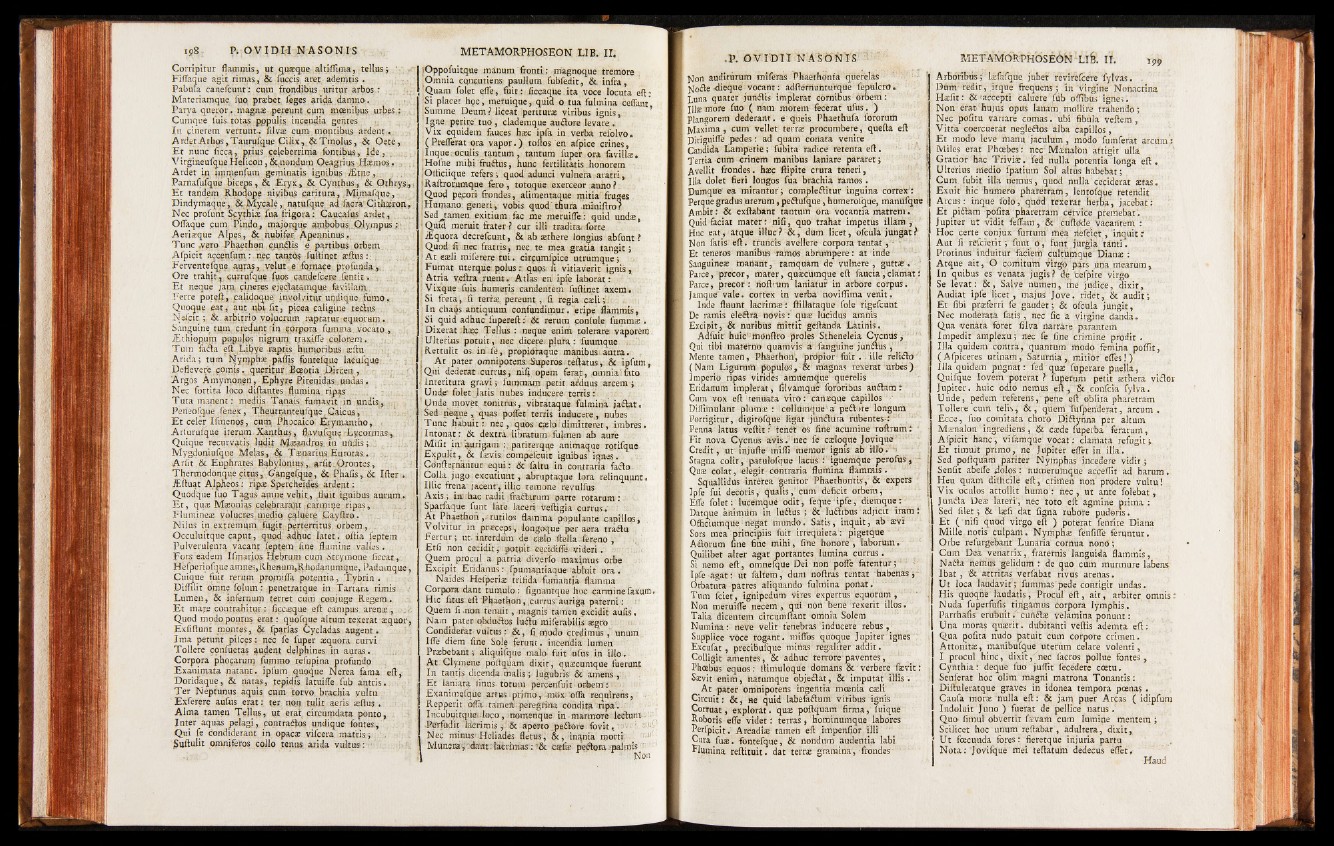 198 P. OVIDII NASONIS
Corripitur flammis, ut quæque altissima, tellus;
Fissaque agit rimas, & succis aret ademtis.
Pabula canescunt: cum frondibus uritur arbos:
Materiamque suo præbet seges arida damno.
Parva queror. magnæ pereunt cum mœnibus urbes:
Cumque suis totas populis incendia gentes
In cinerem vertunt. silvæ cum montibus ardent.
Ardet Athos, Taurusque Cilix, & Tmolus, & Oete,
Et nunc sicca, prius celeberrima fontibus, Ide,
Virgineusque Helicon, & nondum Oeagrius Hæmos.
Ardet in immensum geminatis ignibus Ætne,
Parnasusque biceps, & Eryx, & Cynthus, & Othrys,
Et tandem Rhodope nivibus caritura, Mimasque,
Dindymaque, & Mycale, natusque ad sacra Cithæron.
Nec prosunt Scythiæ sua frigora: Caucasus ardet,
Ossaque cum Pindo, majorque ambobus Olympus:
Aeriæque Alpes, & nubifer Apenninus.
Tunc vero Phaethon cunctis e partibus orbem
Aspicit accensum: nec tantos sustinet æstus:
Ferventesque auras, velut e fornace profunda,
Ore trahit, currusque suos candescere sentit.
Et neque jam cineres ejectatamque favillam
Ferre potest, calidoque involvitur undique fumo.
Quoque eat, aut ubi sit, picea caligine tectus
Nescit; & arbitrio volucrum raptatur equorum.
Sanguine tum credunt in corpora summa vocato,
Æthiopum populos nigrum traxisse colorem.
Tum facta est Libye raptis humoribus æstu
Arida; tum Nymphæ passis fontesque lacusque
Deflevere comis. queritur Bœotia Dircen,
Argos Amymonen, Ephyre Pirenidas undas.
Nec sortita loco distantes flumina ripas
Tuta manent: mediis Tanais fumavit in undis,
Peneosque senex, Theutranteusque Caicus,
Et celer Ismenos, cum Phocaico Erymantho,
Arsurusque iterum Xanthus, flavusque Lycormas,
Quique recurvatis ludit Mæandros in undis:
Mygdoniusque Melas, & Tænarius Eurotas.
Arsit & Euphrates Babylonius, arsit Orontes,
Thermodonque citus, Gangesque, & Phasis, & Ister.
Æstuat Alpheos: ripæ Spercheides ardent:
Quodque suo Tagus amne vehit, fluit ignibus aurum.
Et, quæ Mæonias celebrarant carmine ripas,
Flumineæ volucres medio caluere Caystro.
Nilus in extremum fugit perterritus orbem,
Occuluitque caput, quod adhuc latet. ostia septem
Pulverulenta vacant septem sine flumine valles.
Fors eadem Ismarios Hebrum cum Strymone siccat,
Hesperiosque amnes, Rhenum, Rhodanumque, Padumque,
Cuique fuit rerum promissa potentia, Tybrin.
Dissilit omne solum: penetratque in Tartara rimis
Lumen, & infernum terret cum conjuge Regem.
Et mare contrahitur: siccæque est campus arenæ,
Quod modo pontus erat: quosque altum texerat æquor,
Existunt montes, & sparsas Cycladas augent.
Ima petunt pisces: nec se super æquora curvi
Tollere consuetas audent delphines in auras.
Corpora phocarum summo resupina profundo
Exanimata natant. ipsum quoque Nerea fama est,
Doridaque, & natas, tepidis latuisse sub antris.
Ter Neptunus aquis cum torvo brachia vultu
Exserere ausus erat: ter non tulit aeris æstus.
Alma tamen Tellus, ut erat circumdata ponto,
Inter aquas pelagi, contractos undique fontes,
Qui se condiderant in opacæ viscera matris;
Sustulit omniferos collo tenus arida vultus:
METAMORPHOSEON LIB. II.
Opposuitque manum fronti: magnoque tremore
Omnia concutiens paullum subsedit, & infra,
Quam solet esse, fuit: siccaque ita voce locuta est:
Si placet hoc, meruique, quid o tua fulmina cessant,
Summe Deum? liceat perituræ viribus ignis,
Igne perire tuo, clademque auctore levare.
Vix equidem fauces hæc ipsa in verba resolvo.
(Presserat ora vapor.) tostos en aspice crines,
Inque oculis tantum, tantum super ora favillæ.
Hosne mihi fructus, hunc fertilitatis honorem
Officiique refers; quod adunci vulnera aratri,
Rastrorumque fero, totoque exerceor anno?
Quod pecori frondes, alimentaque mitia fruges
Humano generi, vobis quod thura ministro?
Sed tamen exitium fac me meruisse: quid undæ,
Quid meruit frater? cur illi tradita sorte
Æquora decrescunt, & ab æthere longius absunt?
Quod si nec fratris, nec te mea gratia tangit;
At cæli miserere tui. circumspice utrumque;
Fumat uterque polus: quos si vitiaverit ignis,
Atria vestra ruent. Atlas en ipse laborat:
Vixque suis humeris candentem sustinet axem.
Si freta, si terræ pereunt, si regia cæli;
In chaos antiquum confundimur. eripe flammis,
Si quid adhuc superest: & rerum consule summæ.
Dixerat hæc Tellus: neque enim tolerare vaporem
Ulterius potuit, nec dicere plura: suumque
Rettulit os in se, propioraque manibus antra.
At pater omnipotens Superos testatus, & ipsum,
Qui dederat currus, nisi opem ferat, omnia fato
Interitura gravi; summam petit arduus arcem;
Unde solet latis nubes inducere terris:
Unde movet tonitrus, vibrataque fulmina jactat.
Sed neque, quas posset terris inducere, nubes
Tunc habuit: nec, quos cælo dimitteret, imbres.
Intonat: & dextra libratum fulmen ab aure
Misit in aurigam: pariterque animaque rotisque
Expulit, & sævis compescuit ignibus ignes.
Consternantur equi: & saltu in contraria facto
Colla jugo excutiunt, abruptaque lora relinquunt.
Illic frena jacent, illic temone revulsus
Axis; in hac radii fractarum parte rotarum:
Sparsaque sunt late laceri vestigia currus.
At Phaethon, rutilos flamma populante capillos,
Volvitur in præceps, longoque per aera tractu
Fertur; ut interdum de cælo stella sereno,
Etsi non cecidit, potuit cecidisse videri.
Quem procul a patria diverso maximus orbe
Excipit Eridanus: spumantiaque abluit ora.
Naides Hesperiæ trifida fumantia flamma
Corpora dant tumulo: signantque hoc carmine saxum.
Hic situs est Phaethon, currus auriga paterni:
Quem si non tenuit, magnis tamen excidit ausis.
Nam pater obductos luctu miserabilis ægro
Condiderat vultus: &, si modo credimus, unum
Isse diem sine Sole ferunt. incendia lumen
Præbebant; aliquisque malo fuit usus in illo.
At Clymene postquam dixit, quæcumque fuerunt
In tantis dicenda malis; lugubris & amens,
Et laniata sinus totum percensuit orbem:
Exanimesque artus primo, mox ossa requirens,
Repperit ossa tamen peregrina condita ripa.
Incubuitque loco, nomenque in marmore lectum
Perfudit lacrimis, & aperto pectore fovit,
Nec minus Heliades fletus, &, inania morti
Munera, dant lacrimas: & cæsæ pectora palmis
Non
P. OVIDII NASONIS
Non auditurum miseras Phaethonta querelas
Nocte dieque vocant: adsternunturque sepulcro.
Luna quater junctis implerat cornibus orbem:
Illæ more suo (nam morem fecerat usus.)
Plangorem dederant. e queis Phaethusa sororum
Maxima, cum vellet terræ procumbere, questa est
Diriguisse pedes: ad quam conata venire
Candida Lampetie; subita radice retenta est.
Tertia cum crinem manibus laniare pararet;
Avellit frondes. hæc stipite crura teneri,
Illa dolet fieri longos sua brachia ramos.
Dumque ea mirantur; complectitur inguina cortex:
Perque gradus uterum, pectusque, humerosque, manusque
Ambit: & exstabant tantum ora vocantia matrem.
Quid faciat mater: nisi, quo trahat impetus illam,
Huc eat, atque illuc? &, dum licet, oscula jungat?
Non satis est. truncis avellere corpora tentat,
Et teneros manibus ramos abrumpere: at inde
Sanguineæ manant, tamquam de vulnere, guttæ.
Parce, precor, mater, quæcumque est saucia, clamat:
Parce, precor: nostrum laniatur in arbore corpus.
Jamque vale. cortex in verba novissima venit.
Inde fluunt lacrimæ: stillataque sole rigescunt
De ramis electra novis: quæ lucidus amnis
Excipit, & nuribus mittit gestanda Latinis.
Adfuit huic monstro proles Stheneleia Cycnus,
Qui tibi materno quamvis a sanguine junctus,
Mente tamen, Phaethon, propior fuit. ille relicto
(Nam Ligurum populos, & magnas rexerat urbes)
Imperio ripas virides amnemque querelis
Eridanum implerat, silvamque sororibus auctam:
Cum vox est tenuata viro: canæque capillos
Dissimulant plumæ: collumque a pectore longum
Porrigitur, digitosque ligat junctura rubentes:
Penna latus vestit: tenet os sine acumine rostrum:
Fit nova Cycnus avis. nec se cæloque Jovique
Credit, ut injuste missi memor ignis ab illo.
Stagna colit, patulosque lacus: ignemque perosus,
Quæ colat, elegit contraria flumina flammis.
Squallidus interea genitor Phaethontis, & expers
Ipse sui decoris, qualis, cum deficit orbem,
Esse solet: lucemque odit, seque ipse, diemque:
Datque animum in luctus; & luctibus adjicit iram:
Officiumque negat mundo. Satis, inquit, ab ævi
Sors mea principiis fuit irrequieta: pigetque
Actorum sine fine mihi, sine honore, laborum.
Quilibet alter agat portantes lumina currus.
Si nemo est, omnesque Dei non posse fatentur;
Ipse agat: ut saltem, dum nostras tentat habenas,
Orbatura patres aliquando fulmina ponat.
Tum sciet, ignipedum vires expertus equorum,
Non meruisse necem, qui non bene rexerit illos.
Talia dicentem circumstant omnia Solem
Numina: neve velit tenebras inducere rebus,
Supplice voce rogant. missos quoque Jupiter ignes
Excusat, precibusque minas regaliter addit.
Colligit amentes, & adhuc terrore paventes,
Phœbus equos: stimuloque domans & verbere sævit:
Sævit enim, natumque objectat, & imputat illis.
At pater omnipotens ingentia mœnia cæli
Circuit: &, ne quid labefactum viribus ignis
Corruat, explorat. quæ postquam firma, suique
Roboris esse videt: terras, hominumque labores
Perspicit. Arcadiæ tamen est impensior illi
Cura suæ. fontesque, & nondum audentia labi
Flumina restituit. dat terræ gramina, frondes
METAMORPHOSEON LIB. II. 199
Arboribus; læsasque jubet revirescere sylvas.
Dum redit, itque frequens; in virgine Nonacrina
Hæsit: & accepti caluere sub ossibus ignes.
Non erat hujus opus lanam mollire trahendo;
Nec positu variare comas. ubi fibula vestem,
Vitta coercuerat neglectos alba capillos,
Et modo leve manu jaculum, modo sumserat arcum;
Miles erat Phœbes: nec Mænalon attigit ulla
Gratior hac Triviæ. sed nulla potentia longa est.
Ulterius medio spatium Sol altus habebat;
Cum subit illa nemus, quod nulla ceciderat ætas.
Exuit hic humero pharetram, lentosque retendit
Arcus: inque solo, quod texerat herba, jacebat:
Et pictam posita pharetram cervice premebat.
Jupiter ut vidit fessam, & custode vacantem:
Hoc certe conjux furtum mea nesciet, inquit:
Aut si rescierit; sunt o, sunt jurgia tanti.
Protinus induitur faciem cultumque Dianæ:
Atque ait, O comitum virgo pars una mearum,
In quibus es venata jugis? de cespite virgo
Se levat: &, Salve numen, me judice, dixit,
Audiat ipse licet, majus Jove. ridet, & audit;
Et sibi præferri se gaudet; & oscula jungit,
Nec moderata satis, nec sic a virgine danda.
Qua venata foret silva narrare parantem
Impedit amplexu; nec se sine crimine prodit.
Illa quidem contra, quantum modo femina possit,
(Aspiceres utinam, Saturnia, mitior esses!)
Illa quidem pugnat: sed quæ superare puella,
Quisque Jovem poterat? superum petit æthera victor
Jupiter. huic odio nemus est, & conscia sylva.
Unde, pedem referens, pene est oblita pharetram
Tollere cum telis, &, quem suspenderat, arcum.
Ecce, suo comitata choro Dictynna per altum
Mænalon ingrediens, & cæde superba ferarum,
Aspicit hanc, visamque vocat: clamata refugit;
Et timuit primo, ne Jupiter esset in illa.
Sed postquam pariter Nymphas incedere vidit;
Sensit abesse dolos: numerumque accessit ad harum.
Heu quam difficile est, crimen non prodere vultu!
Vix oculos attollit humo: nec, ut ante solebat,
Juncta Deæ lateri, nec toto est agmine prima:
Sed silet; & læsi dat signa rubore pudoris.
Et (nisi quod virgo est) poterat sentire Diana
Mille notis culpam. Nymphæ sensisse feruntur.
Orbe resurgebant Lunaria cornua nono;
Cum Dea venatrix, fraternis languida flammis,
Nacta nemus gelidum: de quo cum murmure labens
Ibat, & attritas versabat rivus arenas.
Ut loca laudavit; summas pede contigit undas.
His quoque laudatis, Procul est, ait, arbiter omnis:
Nuda superfusis tingamus corpora lymphis.
Parrhasis erubuit. cunctæ velamina ponunt:
Una moras quærit. dubitanti vestis ademta est:
Qua posita nudo patuit cum corpore crimen.
Attonitæ, manibusque uterum celare volenti,
I procul hinc, dixit, nec sacros pollue fontes,
Cynthia: deque suo jussit secedere cœtu.
Senserat hoc olim magni matrona Tonantis:
Distuleratque graves in idonea tempora pœnas.
Causa moræ nulla est: & jam puer Arcas (idipsum
Indoluit Juno) fuerat de pellice natus.
Quo simul obvertit sævam cum lumine mentem;
Scilicet hoc unum restabat, adultera, dixit,
Ut fœcunda fores: fieretque injuria partu
Nota: Jovisque mei testatum dedecus esset.
Haud